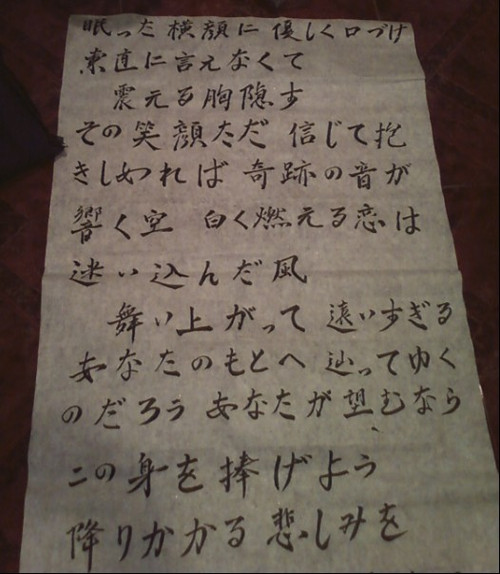 眠った横顔に 優しく口づけ
素直に言えなくて
震える胸隠す
その笑顔ただ 信じて抱
きしめれば 奇跡の音が
響く空 白く燃える恋は
迷い込んだ風
舞い上がって 遠いすぎる
あなたのもとへ 辿ってゆく
のだろう あなたが望むなら
この身を捧げよう
降りかかる悲しみを